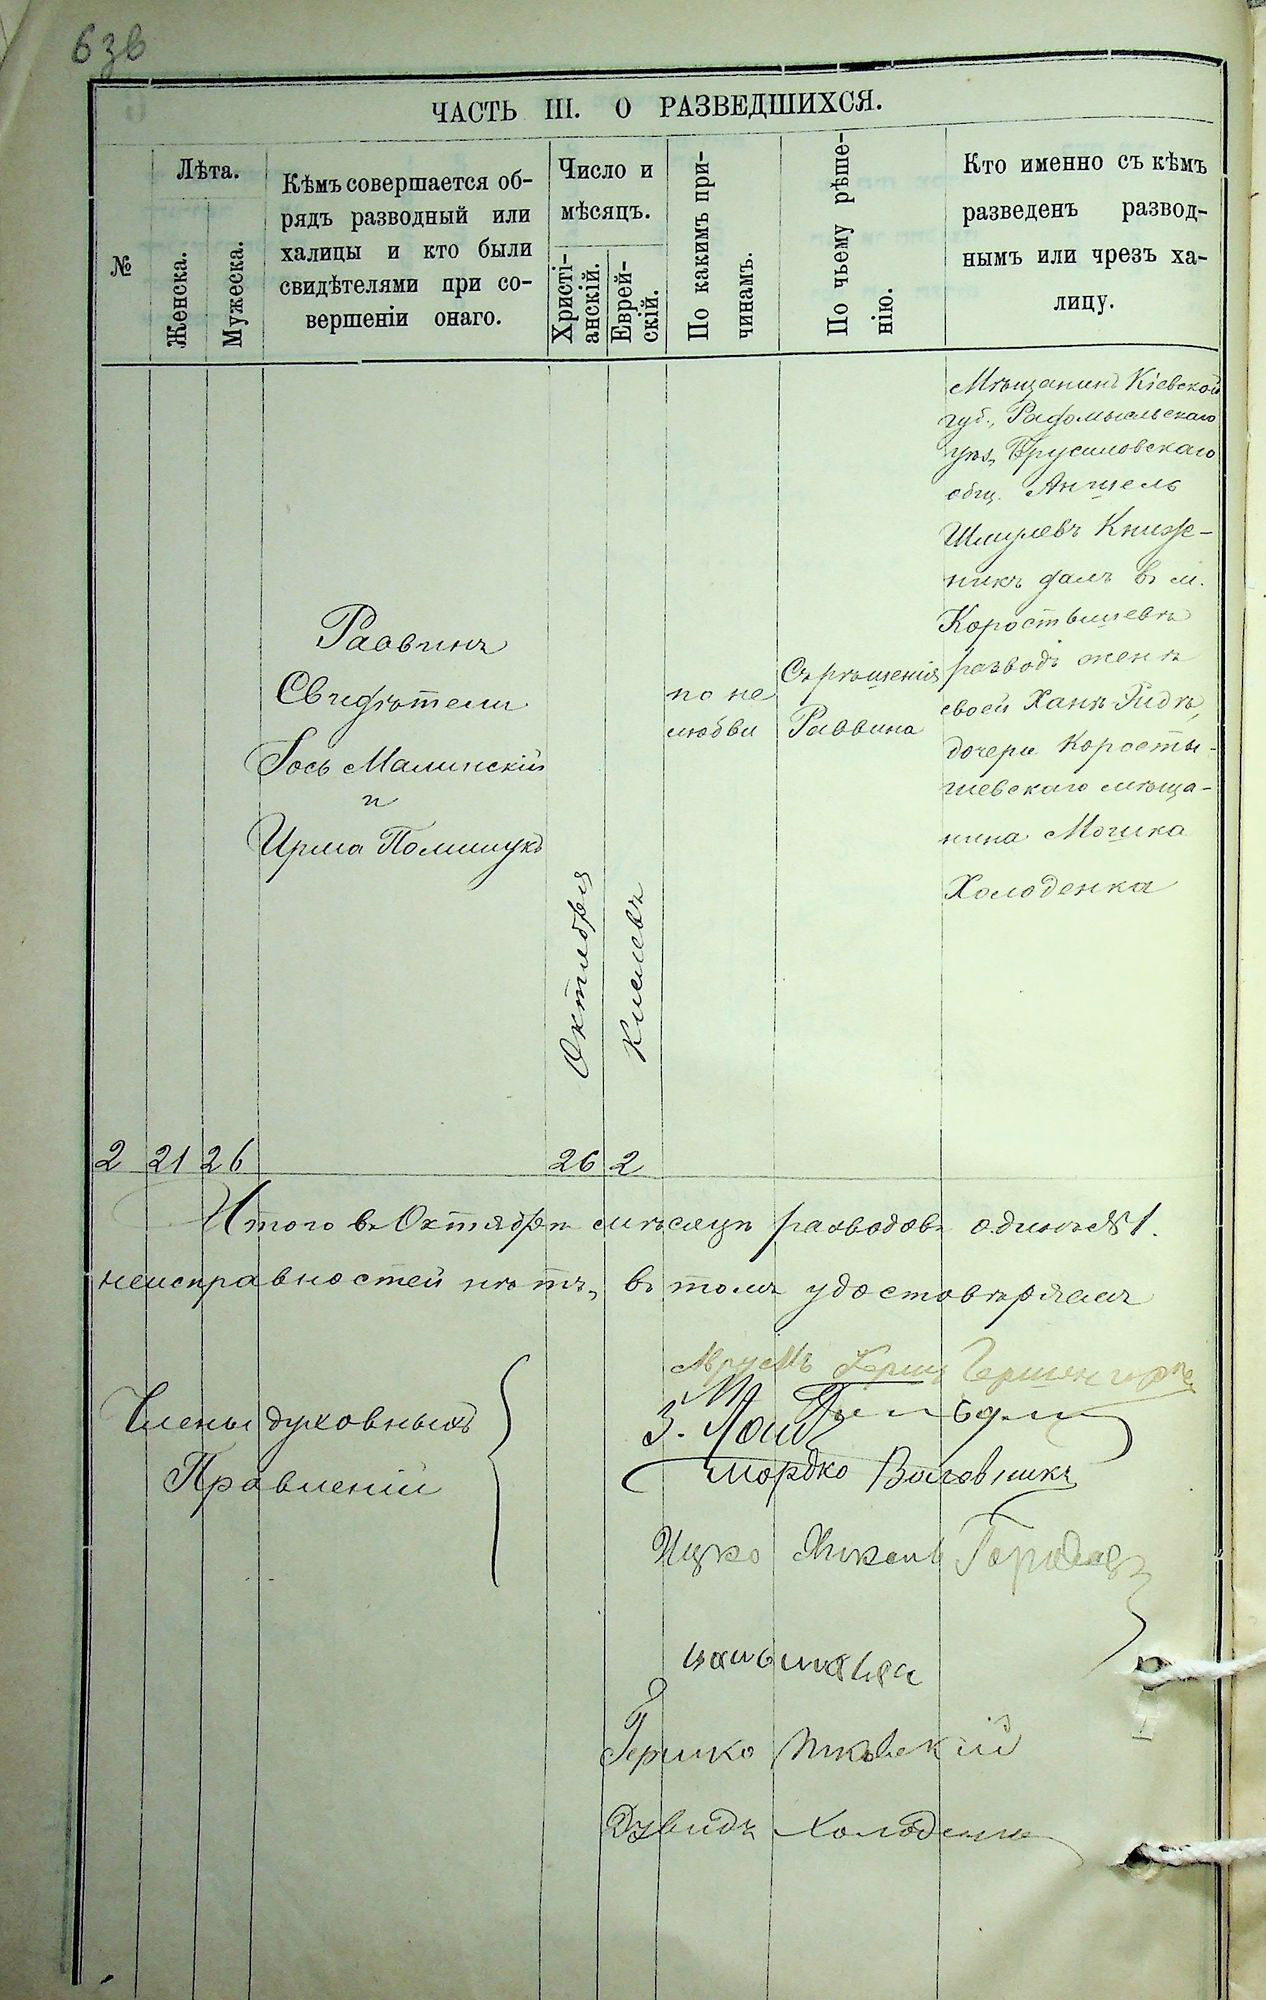 63в
ЧАСТЬ III. О РАЗВЕДШИХСЯ.
№
Лѣта.
Женска.
Мужеска.
Кѣмъ совершается об-
рядъ разводный или
халицы и кто были
свидѣтелями при со-
вершеніи онаго.
Число и
мѣсяцъ.
Христі-
анскій.
Еврей-
скій.
По какимъ при-
чинамъ.
По чьему рѣше-
нію.
Кто именно съ кѣмъ
разведенъ развод-
нымъ или чрезъ ха-
лицу.
2
21
26
Раввинъ
Свидѣтели
Іось Малинскій
и
Ирма Полищукъ
Октября
26
Кислевъ
2
по не
любви
Съ рѣшенія
Раввина
Мѣщанинъ Кіевской
губ., Радомысльскаго
уѣз, Брусиловскаго
общ. Аншель
Шмулевъ Книж-
никъ далъ въ м.
Коростышевѣ
разводъ женѣ
своей Ханѣ-Риѳѣ,
дочери Коросты-
шевскаго мѣща-
нина Мошка
Холоденка
Итого въ Октябрѣ мѣсяцѣ разводовъ одинъ № 1.
неисправностей нѣтъ, въ томъ удостовѣряемъ
Члены духовныхъ
Правленій
Аврумъ Герш
З.
Мордко Воловникъ
Ицко
Гершко
Дувидъ Холоденко